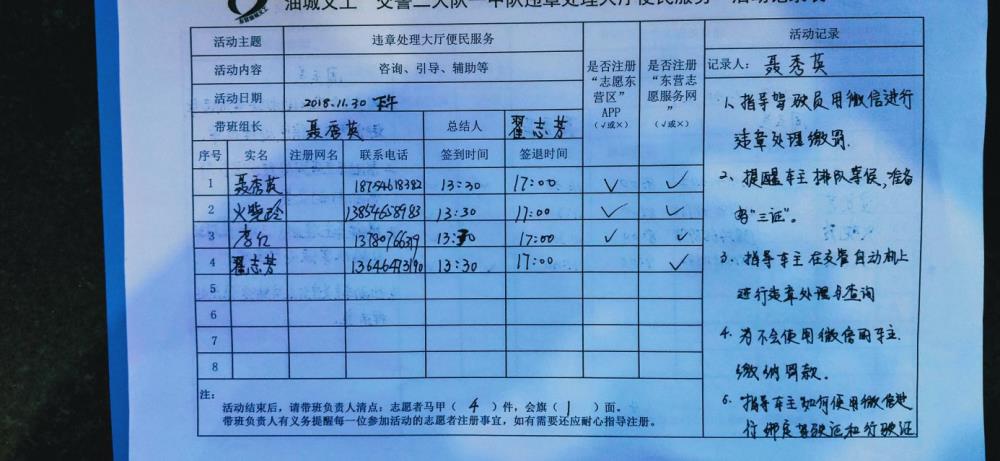 油城义工 交警二大队一中队违章处理大厅便民服务 活动记录表
活动主题 违章处理大厅便民服务
活动内容 咨询、引导、辅助等
活动日期 2018.11.30 下午
带班组长 聂秀英 总结人 翟志芳
是否注册“志愿东营区”APP（√或×）
是否注册“东营志愿服务网”（√或×）
序号 实名 注册网名 联系电话 签到时间 签退时间
1 聂秀英 18754618382 13:30 17:00 √ √
2 火紫玲 13854658983 13:30 17:00 √ √
3 李红 13:30 17:00 √ √
4 翟志芳 13646473190 13:30 17:00 √
5
6
7
8
注：
活动结束后，请带班负责人清点：志愿者马甲（ 4 ）件，会旗（ 1 ）面。
带班负责人有义务提醒每一位参加活动的志愿者注册事宜，如有需要还应耐心指导注册。
活动记录
记录人：聂秀英
1、指导驾驶员用微信进行
违章处理缴罚.
2、提醒车主排队等候，准备
“三证”。
3、指导车主在交警自动机上
进行违章处理与查询
4、为不会使用微信的车主.
缴纳罚款.
5、指导车主如何使用微信进
行绑定驾驶证和行驶证